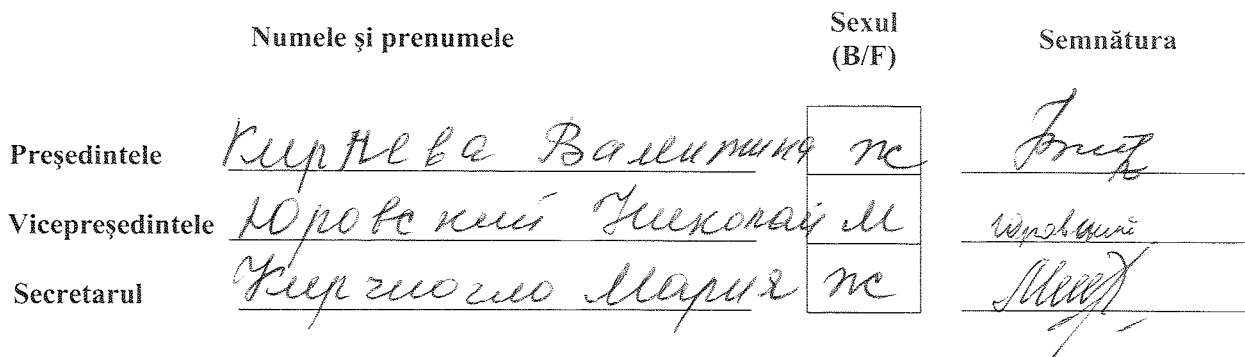 Numele şi prenumele Sexul Semnătura
(B/F)
Preşedintele Валентина ж
Vicepreşedintele Юровский Николай М Юровский
Secretarul Кирчиогло Мария ж